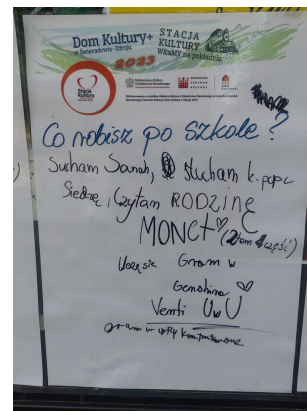 Dom Kultury+
w Świeradowie-Zdroju
STACJA
KULTURY
WKaMY na pokładzie
2023
Stacja
Kultury
Co robisz po szkole?
Sucham Sanah, Słucham k-popu
Siedzę, Czytam RODZINĘ
MONET (2tom 1część)
Uczę się Gram w
Genshina
Venti UwU
gram w gry komputerowe